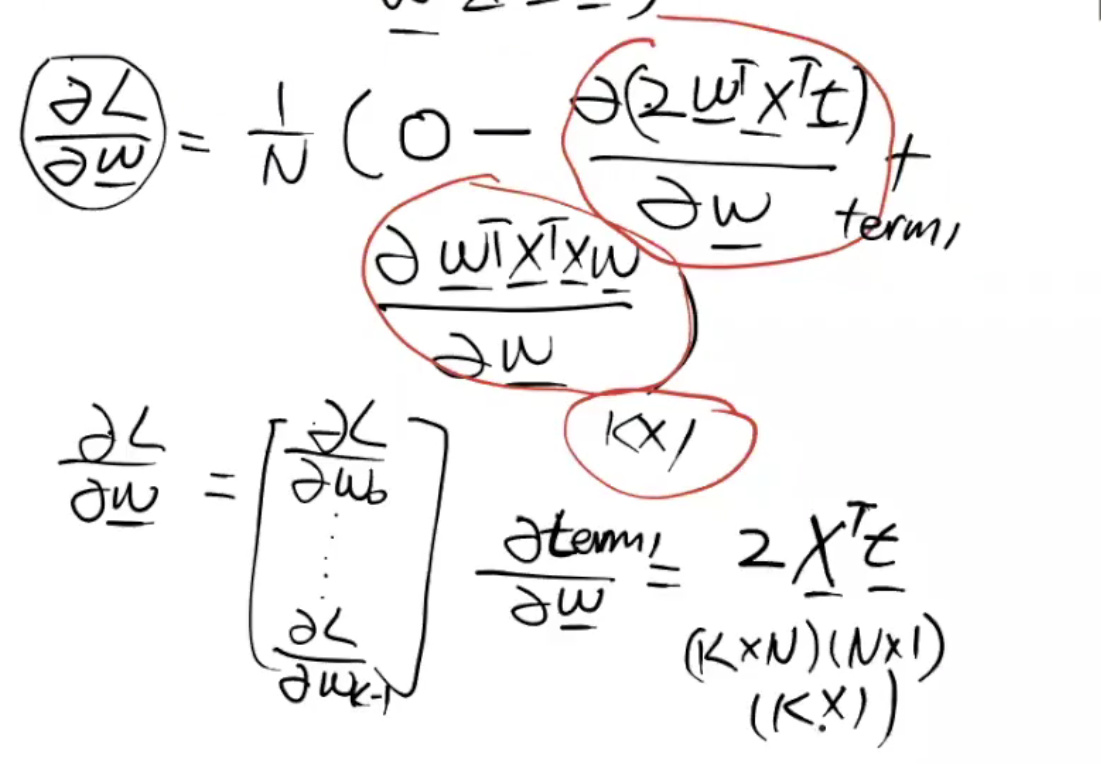 ∂L/∂w = 1/N ( 0 − ∂(2 wᵀ Xᵀ t)/∂w +
term1
∂ wᵀ Xᵀ X w / ∂w )
K×1
∂L/∂w = [ ∂L/∂w₀ ⋮ ∂L/∂w_{K-1} ]
∂term1/∂w = 2 Xᵀ t
(K×N)(N×1)
(K×1)